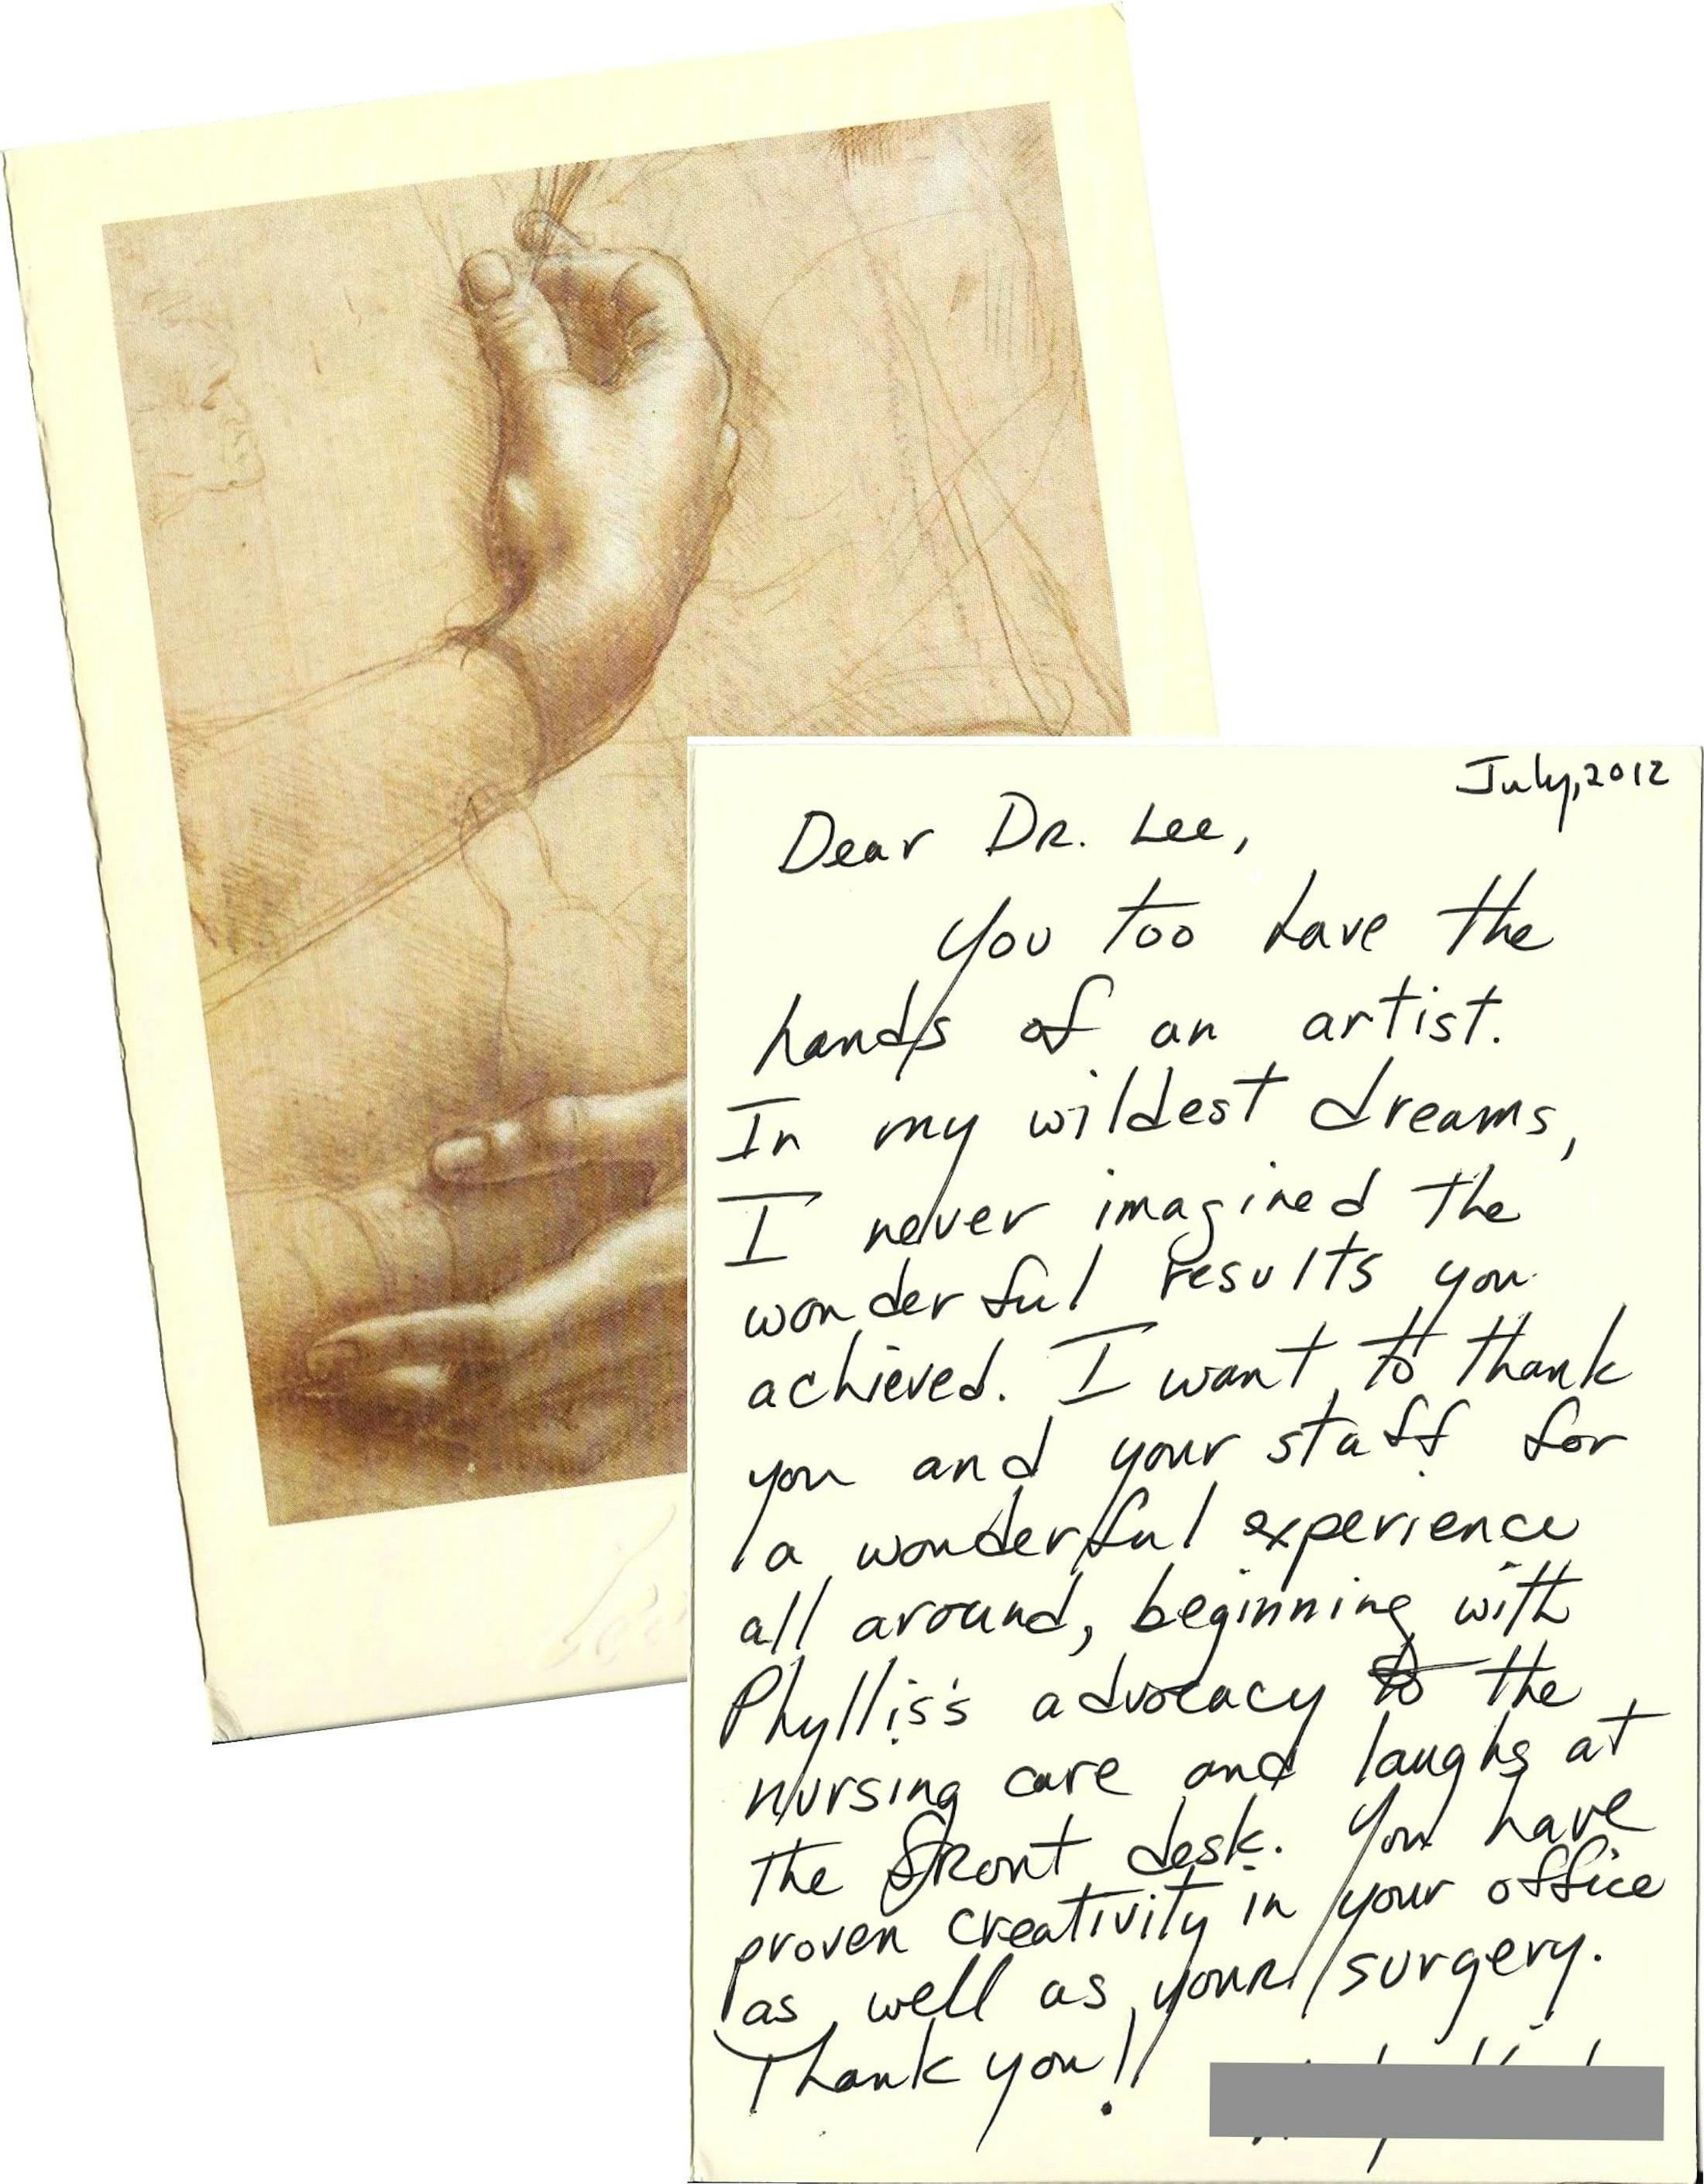 July, 2012
Dear Dr. Lee,
You too have the
hands of an artist.
In my wildest dreams,
I never imagined the
wonderful results you
achieved. I want to thank
you and your staff for
a wonderful experience
all around, beginning with
Phyllis's advocacy to the
nursing care and laughs at
the front desk. You have
proven creativity in your office
as well as your surgery.
Thank you!